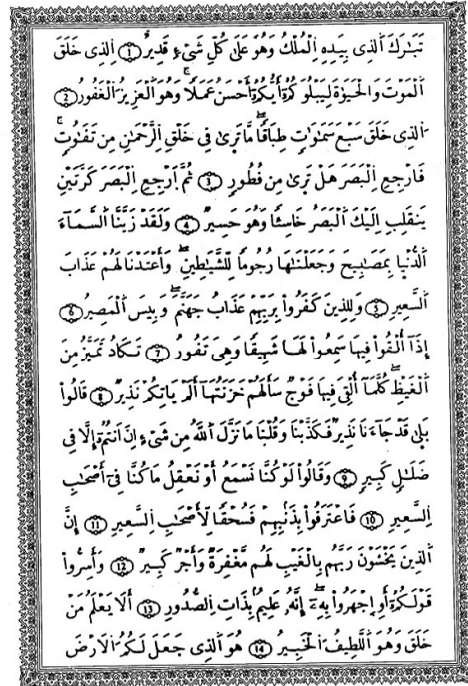 تَبَارَكَ اَلذِى بِيَدِهِ اِلْمُلْكُ وَهُوَ عَلَىٰ كُلِّ شَىْءٍ قَدِيرٌ ١ اِلذِى خَلَقَ
اَلْمَوْتَ وَالْحَيَوٰةَ لِيَبْلُوَكُمُۥٓ أَيُّكُمُۥٓ أَحْسَنُ عَمَلًا وَهُوَ اَلْعَزِيزُ اُلْغَفُورُ ٢
اَلذِى خَلَقَ سَبْعَ سَمَٰوَٰتٍ طِبَاقًا مَّا تَرَىٰ فِى خَلْقِ اِلرَّحْمَٰنِ مِن تَفَٰوُتٍ
فَارْجِعِ اِلْبَصَرَ هَلْ تَرَىٰ مِن فُطُورٍ ٣ ثُمَّ اَرْجِعِ اِلْبَصَرَ كَرَّتَيْنِ
يَنقَلِبِ اِلَيْكَ اَلْبَصَرُ خَاسِئًا وَهُوَ حَسِيرٌ ٤ وَلَقَدْ زَيَّنَّا اَلسَّمَآءَ
اَلدُّنْيَا بِمَصَٰبِيحَ وَجَعَلْنَٰهَا رُجُومًا لِّلشَّيَٰطِينِ وَأَعْتَدْنَا لَهُمْ عَذَابَ
اَلسَّعِيرِ ٥ وَلِلذِينَ كَفَرُوا۟ بِرَبِّهِمْ عَذَابُ جَهَنَّمَ وَبِيسَ اَلْمَصِيرُ ٦
إِذَآ أُلْقُوا۟ فِيهَا سَمِعُوا۟ لَهَا شَهِيقًا وَهِىَ تَفُورُ ٧ تَكَادُ تَمَيَّزُ مِنَ
اَلْغَيْظِ كُلَّمَآ أُلْقِىَ فِيهَا فَوْجٌ سَأَلَهُمْ خَزَنَتُهَآ أَلَمْ يَاتِكُمْ نَذِيرٌ ٨ قَالُوا۟
بَلَىٰ قَدْ جَآءَنَا نَذِيرٌ فَكَذَّبْنَا وَقُلْنَا مَا نَزَّلَ اَللَّهُ مِن شَىْءٍ اِنْ أَنتُمُۥٓ إِلَّا فِى
ضَلَٰلٍ كَبِيرٍ ٩ وَقَالُوا۟ لَوْ كُنَّا نَسْمَعُ أَوْ نَعْقِلُ مَا كُنَّا فِىٓ أَصْحَٰبِ
اِلسَّعِيرِ ١٠ فَاعْتَرَفُوا۟ بِذَنۢبِهِمْ فَسُحْقًا لِّأَصْحَٰبِ اِلسَّعِيرِ ١١ إِنَّ
اَلذِينَ يَخْشَوْنَ رَبَّهُم بِالْغَيْبِ لَهُم مَّغْفِرَةٌ وَأَجْرٌ كَبِيرٌ ١٢ وَأَسِرُّوا۟
قَوْلَكُمُۥٓ أَوِ اِجْهَرُوا۟ بِهِۦٓ إِنَّهُۥ عَلِيمٌۢ بِذَاتِ اِلصُّدُورِ ١٣ أَلَا يَعْلَمُ مَنْ
خَلَقَ وَهُوَ اَللَّطِيفُ اُلْخَبِيرُ ١٤ هُوَ اَلذِى جَعَلَ لَكُمُ اُلَارْضَ